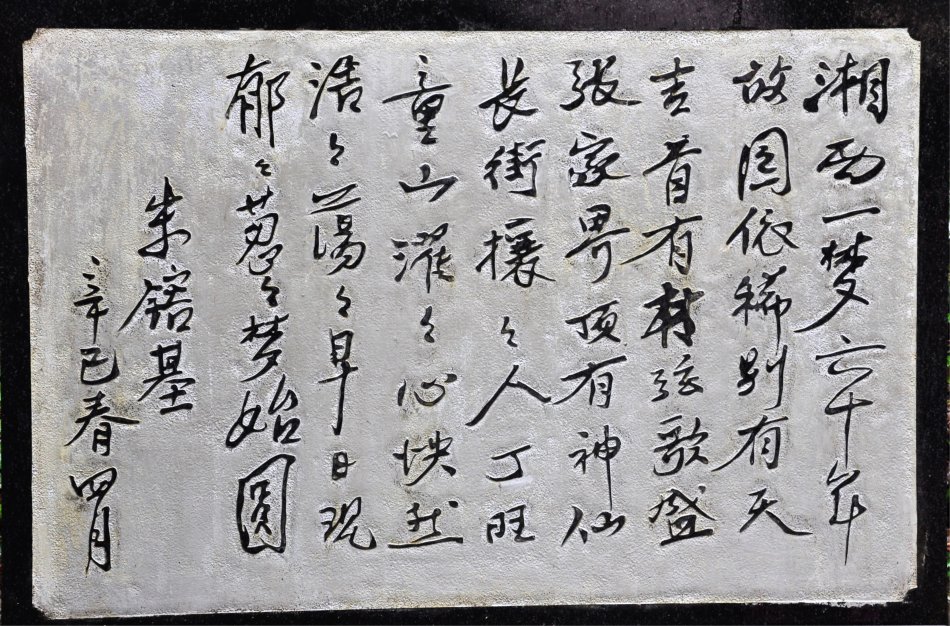 湘西一梦六十年
故园依稀别有天
吉首有材弦歌盛
张家界顶有神仙
長街攘々人丁旺
童山濯々心怏然
浩々荡々早日现
郁々葱々梦始圆
朱镕基
辛巳春四月